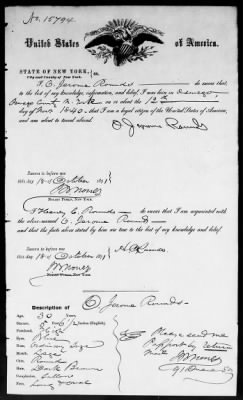 No. 15794.
United States of America.
STATE OF NEW YORK, } ss.
City and County of New York.
I, O. Jerome Rounds do swear that,
to the best of my knowledge, information, and belief, I was born in Oswego
Oswego County N. York on or about the 12th
day of 1840; that I am a legal citizen of the United States of America,
and am about to travel abroad.
O Jerome Rounds
Sworn to before me
this 18 October 187
NOTARY PUBLIC, NEW-YORK.
I, Harvey C. Rounds do swear that I am acquainted with
the above-named O. Jerome Rounds
and that the facts above stated by him are true to the best of my knowledge and belief.
Sworn to before me
this day 18 of October 187
NOTARY PUBLIC, NEW-YORK.
Description of O Jerome Rounds
Age, 30 Years
Stature, 5 Inches (English).
Forehead, High
Eyes, Blue
Nose, Ordinary Size
Mouth, Large
Chin, Round
Hair, Dark Brown
Complexion,
Face, Long & Oval
Please send me
Passport by return
Mail